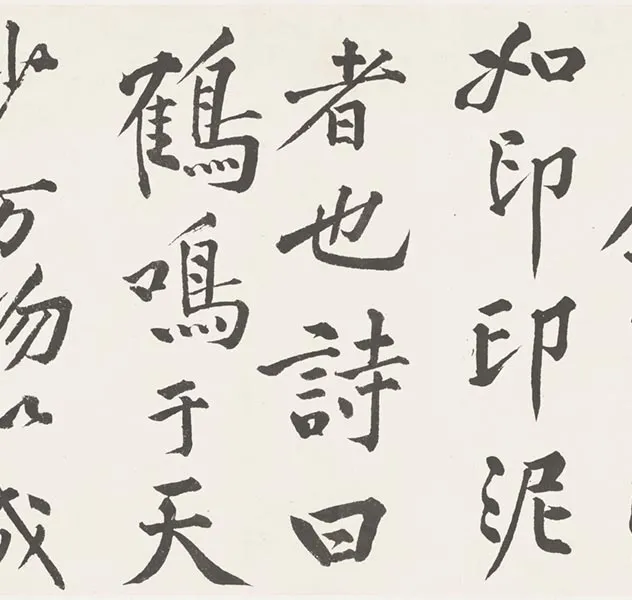 如印印泥
者也詩曰
鶴鳴于天
万物以成